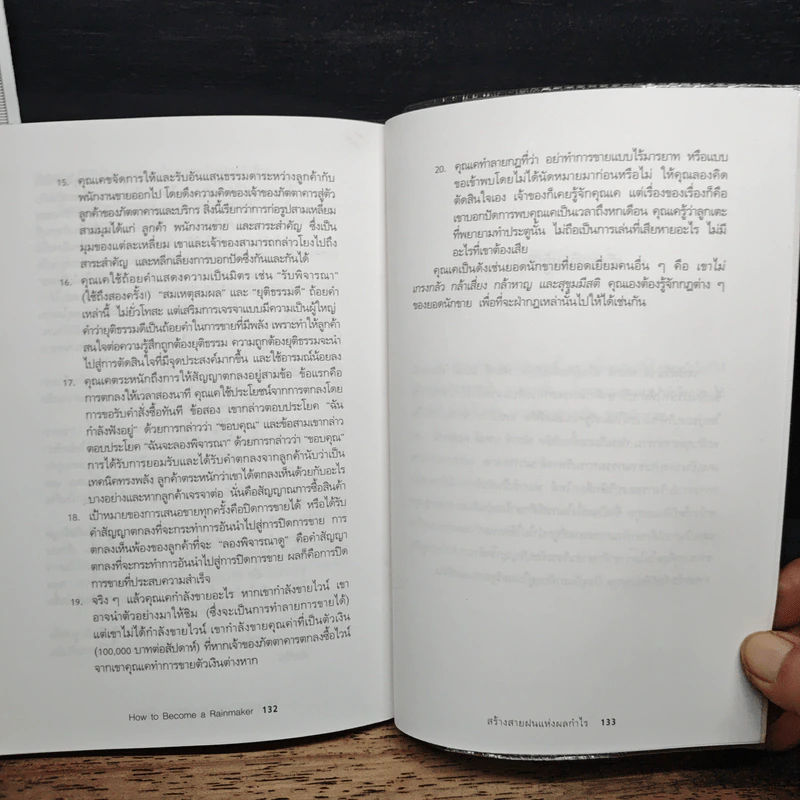 15. คุณเคขจัดการให้และรับอันแสนธรรมดาระหว่างลูกค้ากับ
พนักงานขายออกไป โดยดึงความคิดของเจ้าของภัตตาคารสู่ตัว
ลูกค้าของภัตตาคารและบริกร สิ่งนี้เรียกว่าการก่อรูปสามเหลี่ยม
สามมุมได้แก่ ลูกค้า พนักงานขาย และสาระสำคัญ ซึ่งเป็น
มุมของแต่ละเหลี่ยม เขาและเจ้าของสามารถกล่าวโยงไปถึง
สาระสำคัญ และหลีกเลี่ยงการบอกปัดซึ่งกันและกันได้
16. คุณเคใช้ถ้อยคำแสดงความเป็นมิตร เช่น “รับพิจารณา”
(ใช้ถึงสองครั้ง!) “สมเหตุสมผล” และ “ยุติธรรมดี” ถ้อยคำ
เหล่านี้ ไม่ยั่วโทสะ แต่เสริมการเจรจาแบบมีความเป็นผู้ใหญ่
คำว่ายุติธรรมดีเป็นถ้อยคำในการขายที่มีพลัง เพราะทำให้ลูกค้า
สนใจต่อความรู้สึกถูกต้องยุติธรรม ความถูกต้องยุติธรรมจะนำ
ไปสู่การตัดสินใจที่มีจุดประสงค์มากขึ้น และใช้อารมณ์น้อยลง
17. คุณเคตระหนักถึงการให้สัญญาตกลงอยู่สามข้อ ข้อแรกคือ
การตกลงให้เวลาสองนาที คุณเคใช้ประโยชน์จากการตกลงโดย
การขอรับคำสั่งซื้อทันที ข้อสอง เขากล่าวตอบประโยค “ฉัน
กำลังฟังอยู่” ด้วยการกล่าวว่า “ขอบคุณ” และข้อสามเขากล่าว
ตอบประโยค “ฉันจะลองพิจารณา” ด้วยการกล่าวว่า “ขอบคุณ”
การได้รับการยอมรับและได้รับคำตกลงจากลูกค้านับว่าเป็น
เทคนิคทรงพลัง ลูกค้าตระหนักว่าเขาได้ตกลงเห็นด้วยกับอะไร
บางอย่างและหากลูกค้าเจรจาต่อ นั่นคือสัญญาณการซื้อสินค้า
18. เป้าหมายของการเสนอขายทุกครั้งคือปิดการขายได้ หรือได้รับ
คำสัญญาตกลงที่จะกระทำการอันนำไปสู่การปิดการขาย การ
ตกลงเห็นพ้องของลูกค้าที่จะ “ลองพิจารณาดู” คือคำสัญญา
ตกลงที่จะกระทำการอันนำไปสู่การปิดการขาย ผลก็คือการปิด
การขายที่ประสบความสำเร็จ
19. จริง ๆ แล้วคุณเคกำลังขายอะไร หากเขากำลังขายไวน์ เขา
อาจนำตัวอย่างมาให้ชิม (ซึ่งจะเป็นการทำลายการขายได้)
แต่เขาไม่ได้กำลังขายไวน์ เขากำลังขายคุณค่าที่เป็นตัวเงิน
(100,000 บาทต่อสัปดาห์) ที่หากเจ้าของภัตตาคารตกลงซื้อไวน์
จากเขาคุณเคทำการขายตัวเงินต่างหาก
How to Become a Rainmaker 132
20. คุณเคทำลายกฎที่ว่า อย่าทำการขายแบบไร้มารยาท หรือแบบ
ขอเข้าพบโดยไม่ได้นัดหมายมาก่อนหรือไม่ ให้คุณลองคิด
ตัดสินใจเอง เจ้าของก็เคยรู้จักคุณเค แต่เรื่องของเรื่องก็คือ
เขาบอกปัดการพบคุณเคเป็นเวลาถึงหกเดือน คุณเครู้ว่าลูกเตะ
ที่พยายามทำประตูนั้น ไม่ถือเป็นการเล่นที่เสียหายอะไร ไม่มี
อะไรที่เขาต้องเสีย
คุณเคเป็นดังเช่นยอดนักขายที่ยอดเยี่ยมคนอื่น ๆ คือ เขาไม่
เกรงกลัว กล้าเสี่ยง กล้าหาญ และสุขุมมีสติ คุณเองต้องรู้จักกฎต่าง ๆ
ของยอดนักขาย เพื่อที่จะฝ่ากฎเหล่านั้นไปให้ได้เช่นกัน
สร้างสายฝนแห่งผลกำไร 133